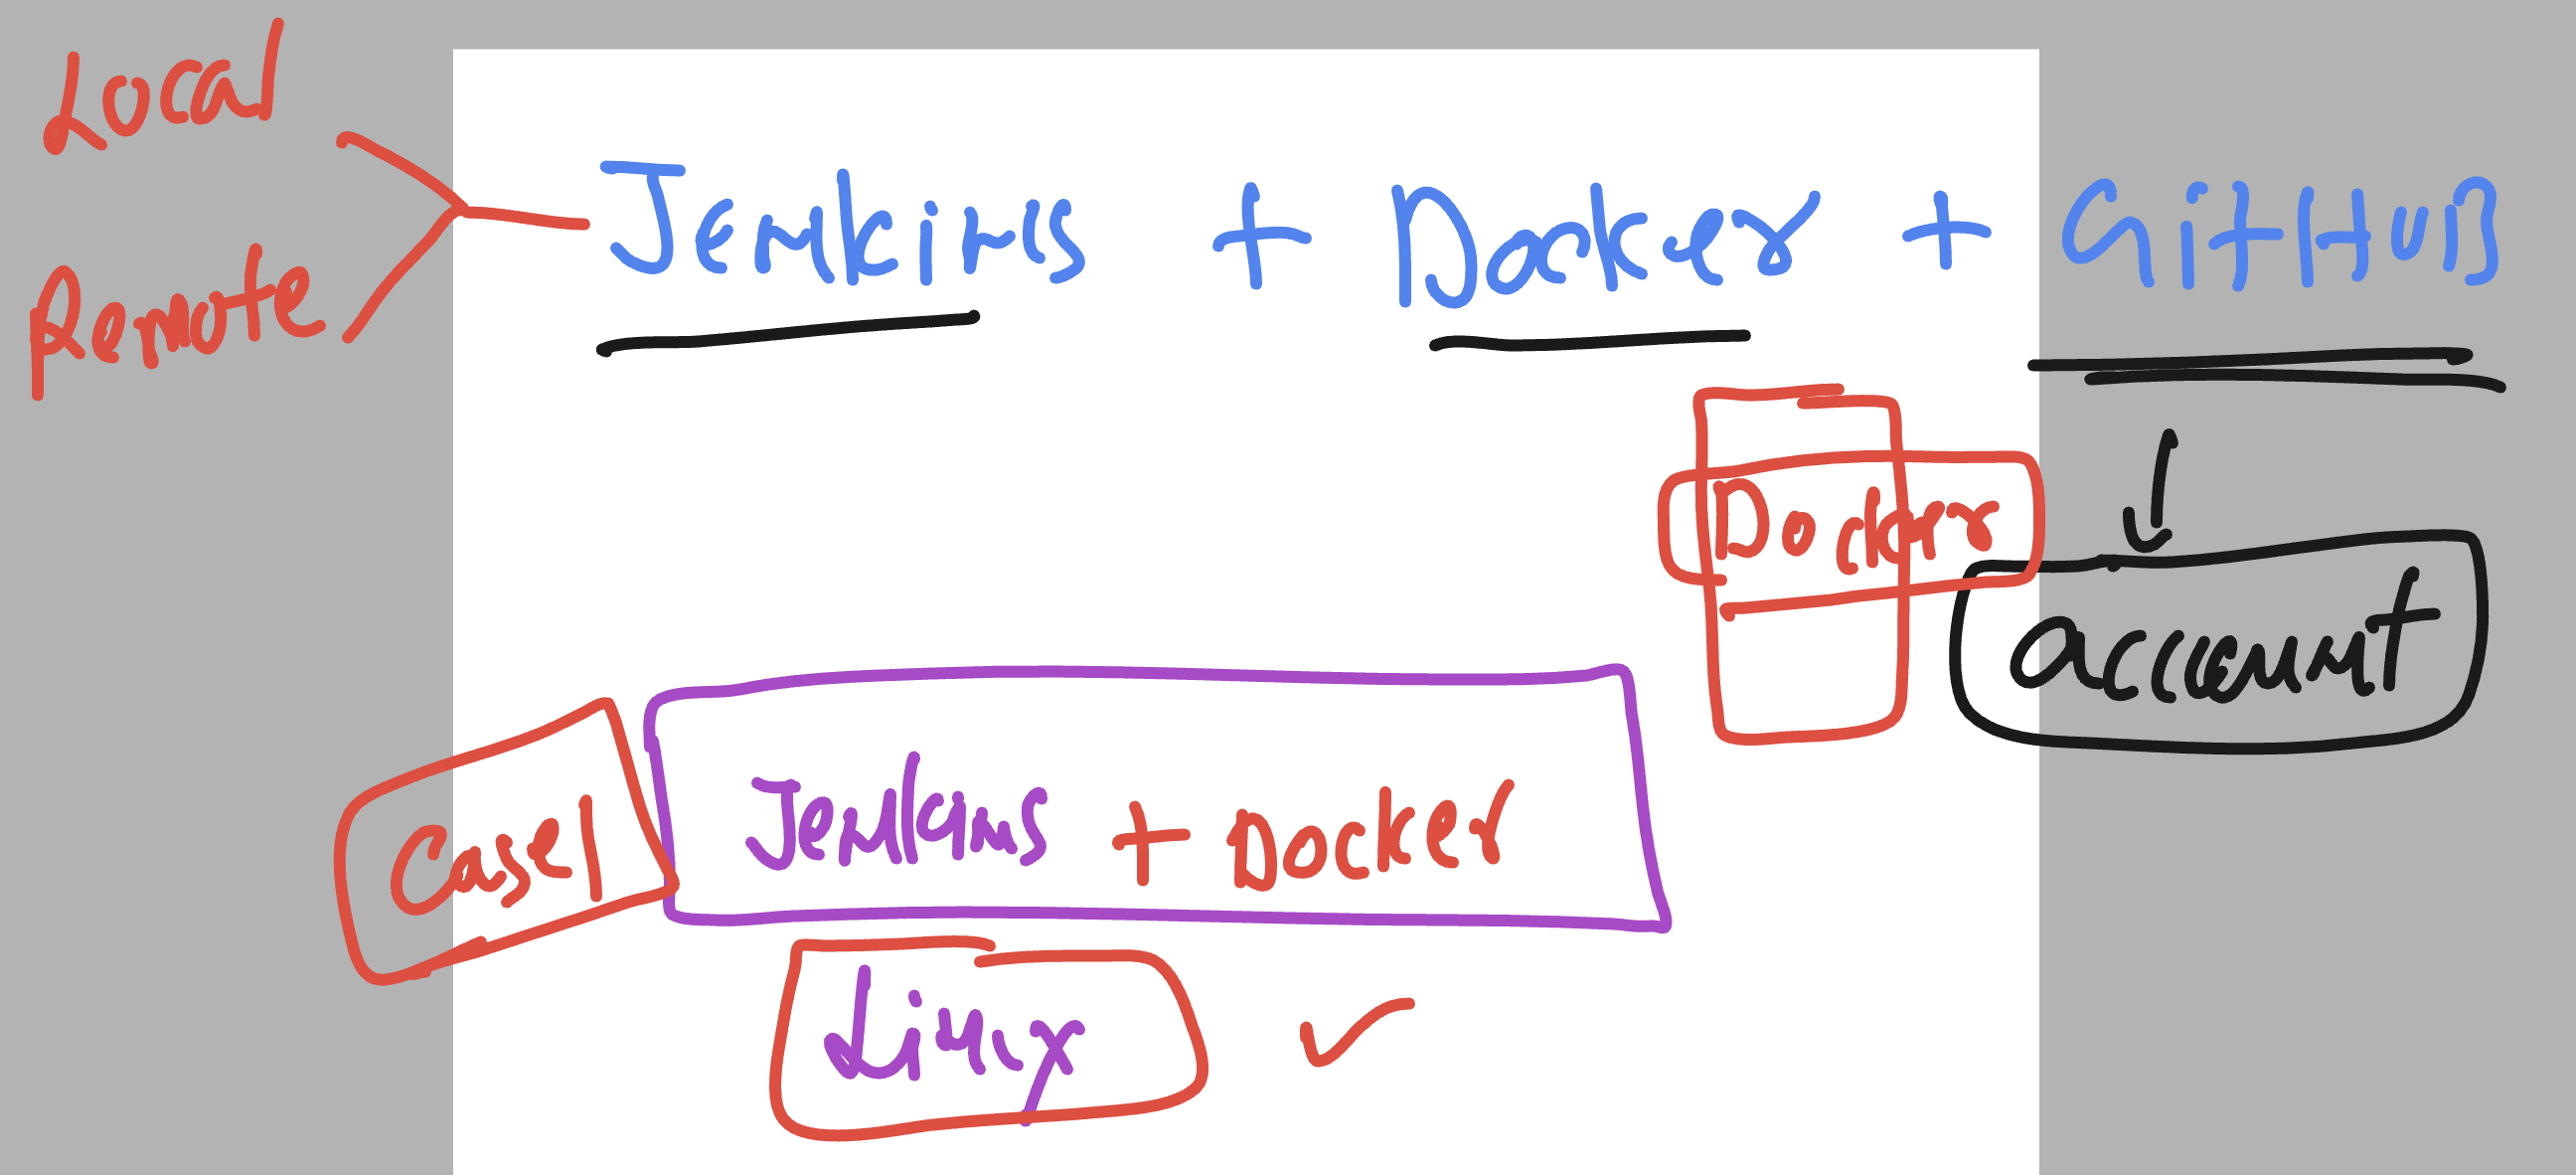 Local
Remote
Jenkins + Docker + GitHUB
Docker
account
Case1
Jenkins + Docker
Linux